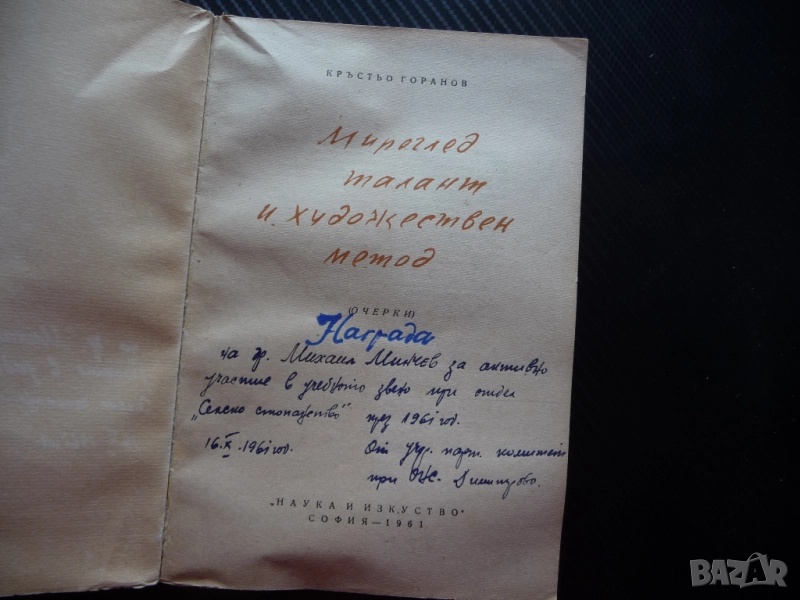 КРЪСТЬО ГОРАНОВ
Мироглед
талант
и художествен
метод
(ОЧЕРКИ)
Награда
на др. Михаил Минчев за активно
участие в учебното звено при отдел
„Селско стопанство" през 1961 год.
16.X.1961 год. От учр. парт. комитет
при Димитрово.
„НАУКА И ИЗКУСТВО"
СОФИЯ — 1961
BAZAR
.bg